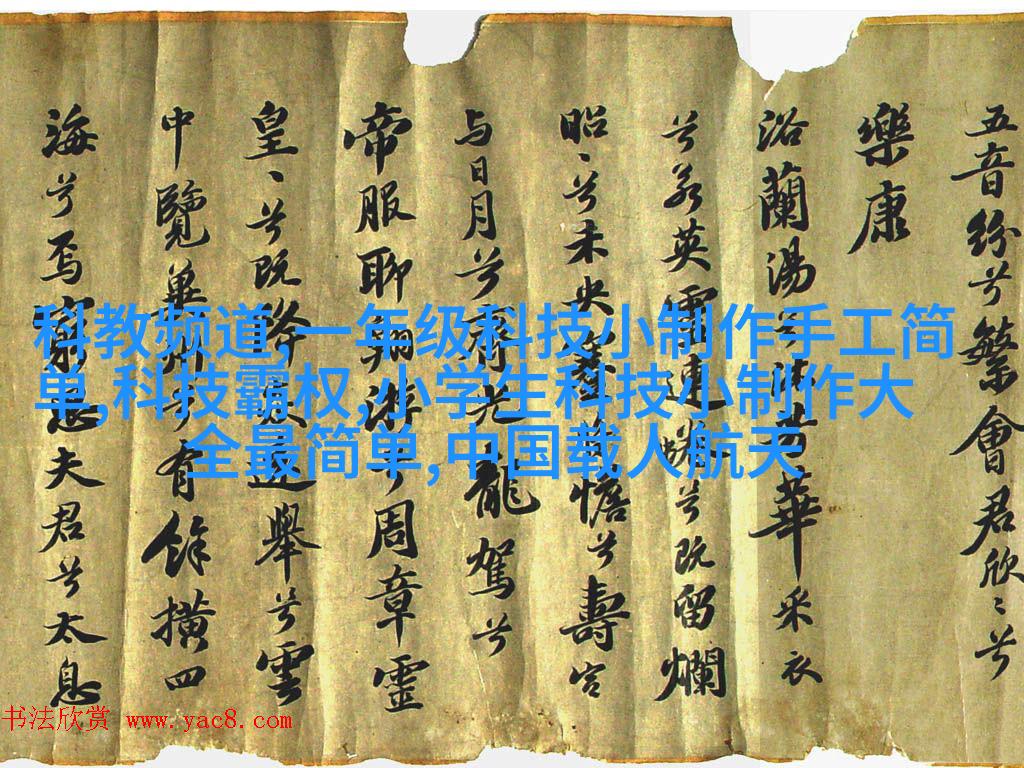 五音紛兮繁會君欣〻兮
樂康
浴蘭湯兮沐芳華采衣
兮若英靈連蜷兮既留爛
昭〻兮未央憺兮壽宮
与日月兮齊光龍駕兮
帝服聊翱游兮周章靈
皇〻兮既降遠舉兮雲
中覽冀州兮有餘橫四
海兮焉窮思夫君兮太息
科教频道,一年级科技小制作手工简
单,科技霸权,小学生科技小制作大
全最简单,中国载人航天
书法欣赏 www.yac8.com